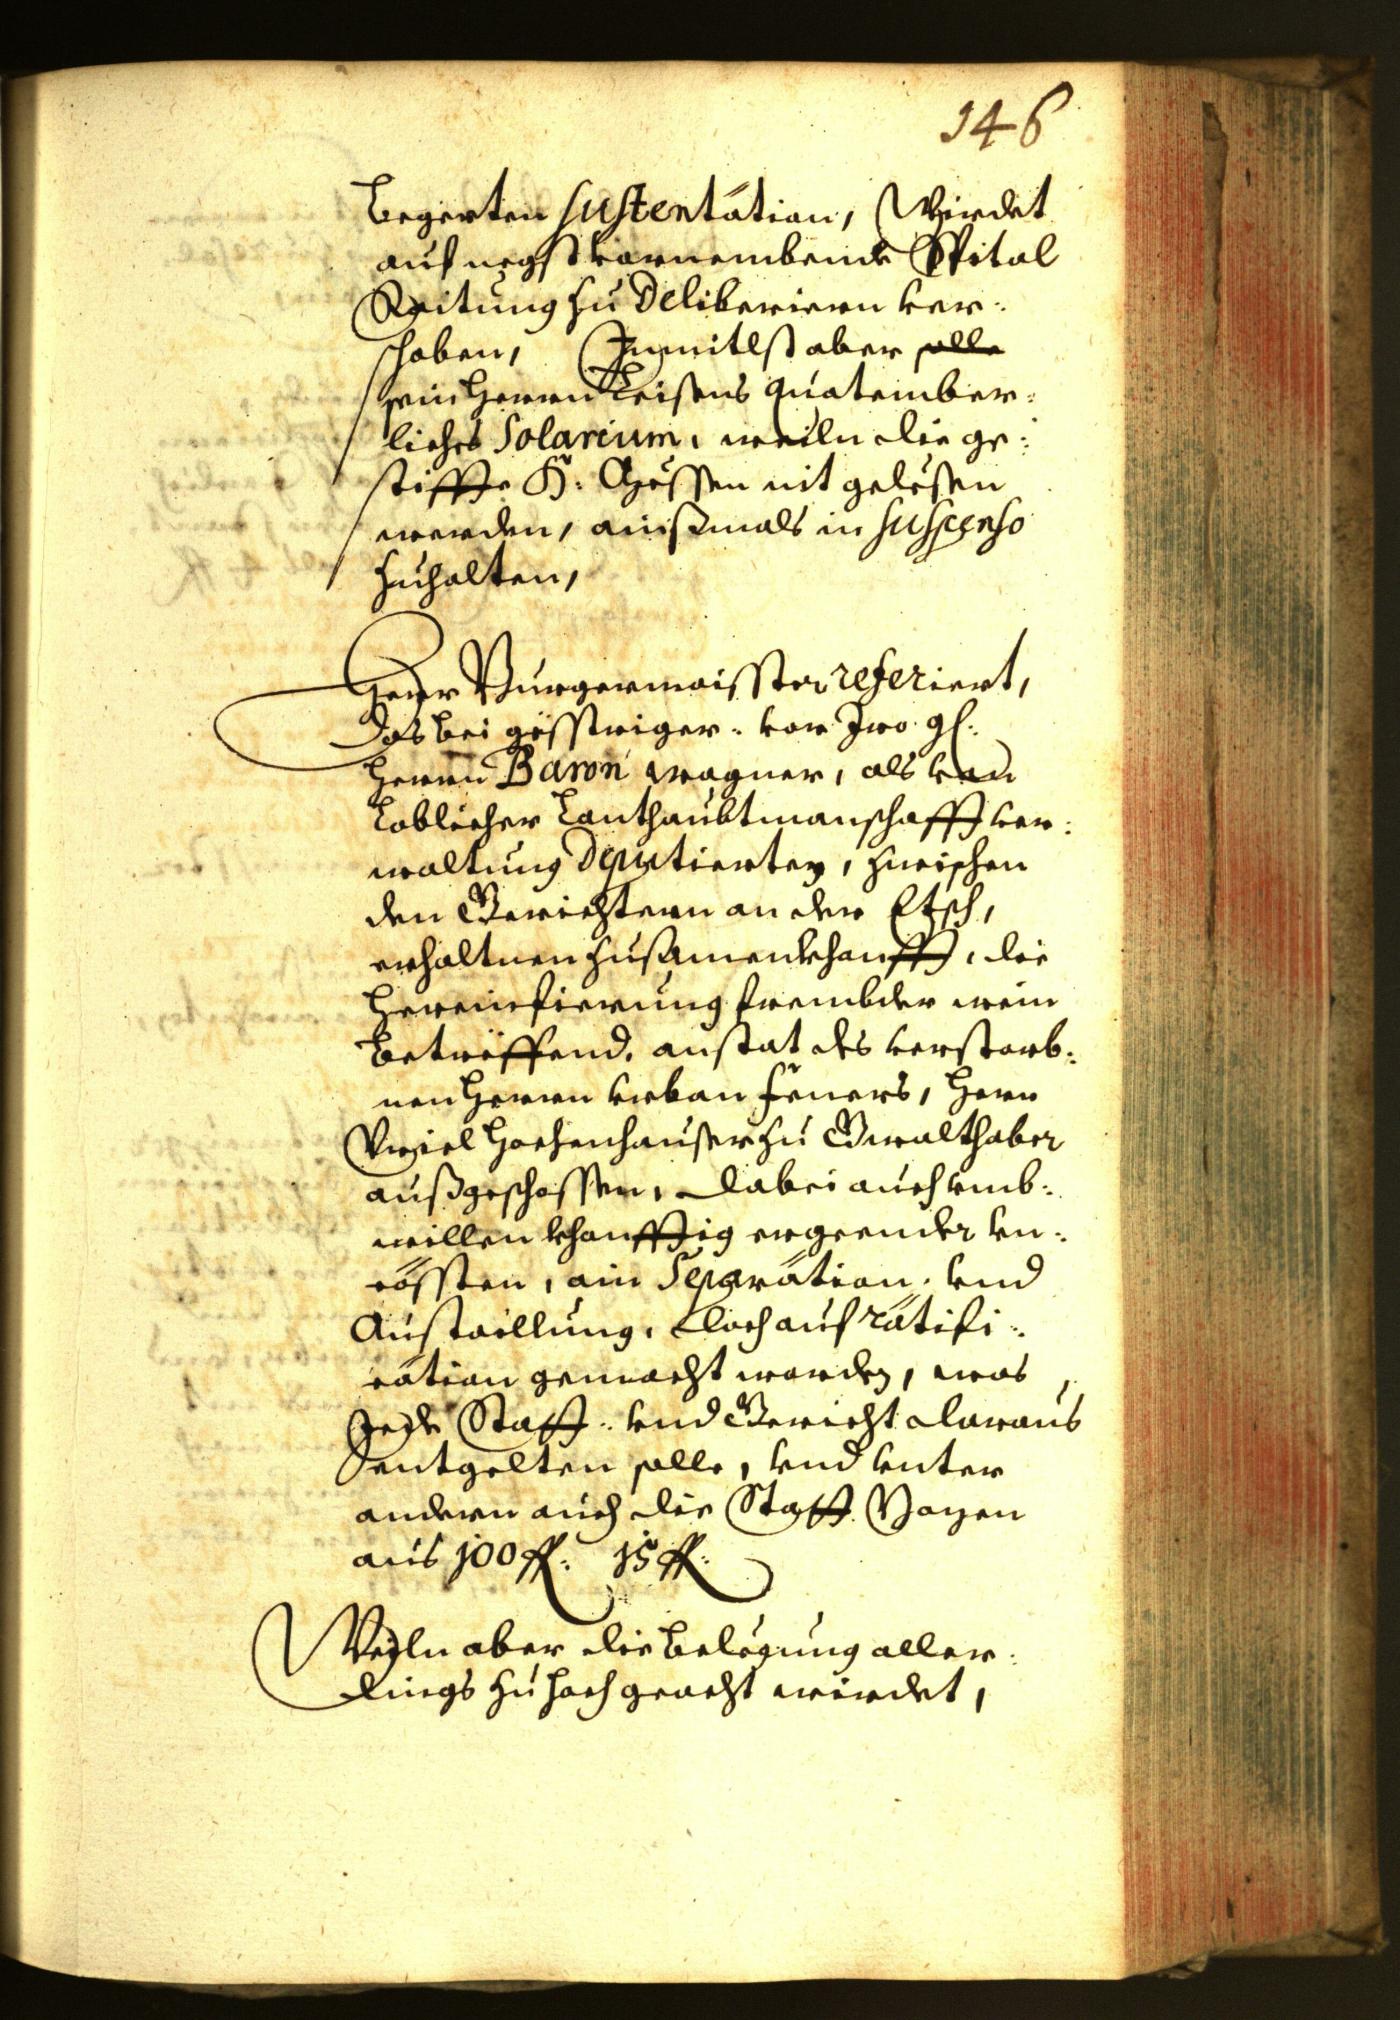 146
begerten sustentätion, Wirdet
auf negst vornembende Spital
Raitung zu deliberiern ver-
schoben, Inmitlst aber solle
sein Herrn Leisens quatember-
liches Solarium, weiln die ge-
stiffte H: Mössen nit gelesen
werden, ainsmals in suspenso
zuhalten,
Herr Burgermaisster referiert,
Das bei gösstriger- vor Iro gl:
Herrn Baron wagner, als von
Loblicher Lanthaubtmanschafft ver-
waltung Deputierten, zwischen
den Gerichtern an der Etsch,
erhaltnen zusamenkhonfft, die
Hereinfierung frembder wein
betreffend, anstat des verstorb-
nen Herrn Urban Feners, Herr
Uriel Hochenhauser zu Gwalthaber
außgeschossen, Dabei auch umb-
willen khonfftig ergeender un-
cössten, ain Separätion, und
Austaillung, Doch auf rätifi-
cätion gemacht worden, was
Jede Statt- und Gericht daraus
entgelten solle, und unter
andern auch die Statt Bozen
aus 100 fl: 15 fl:
Weiln aber die belegung aller-
dings zu hoch geacht wirdet,